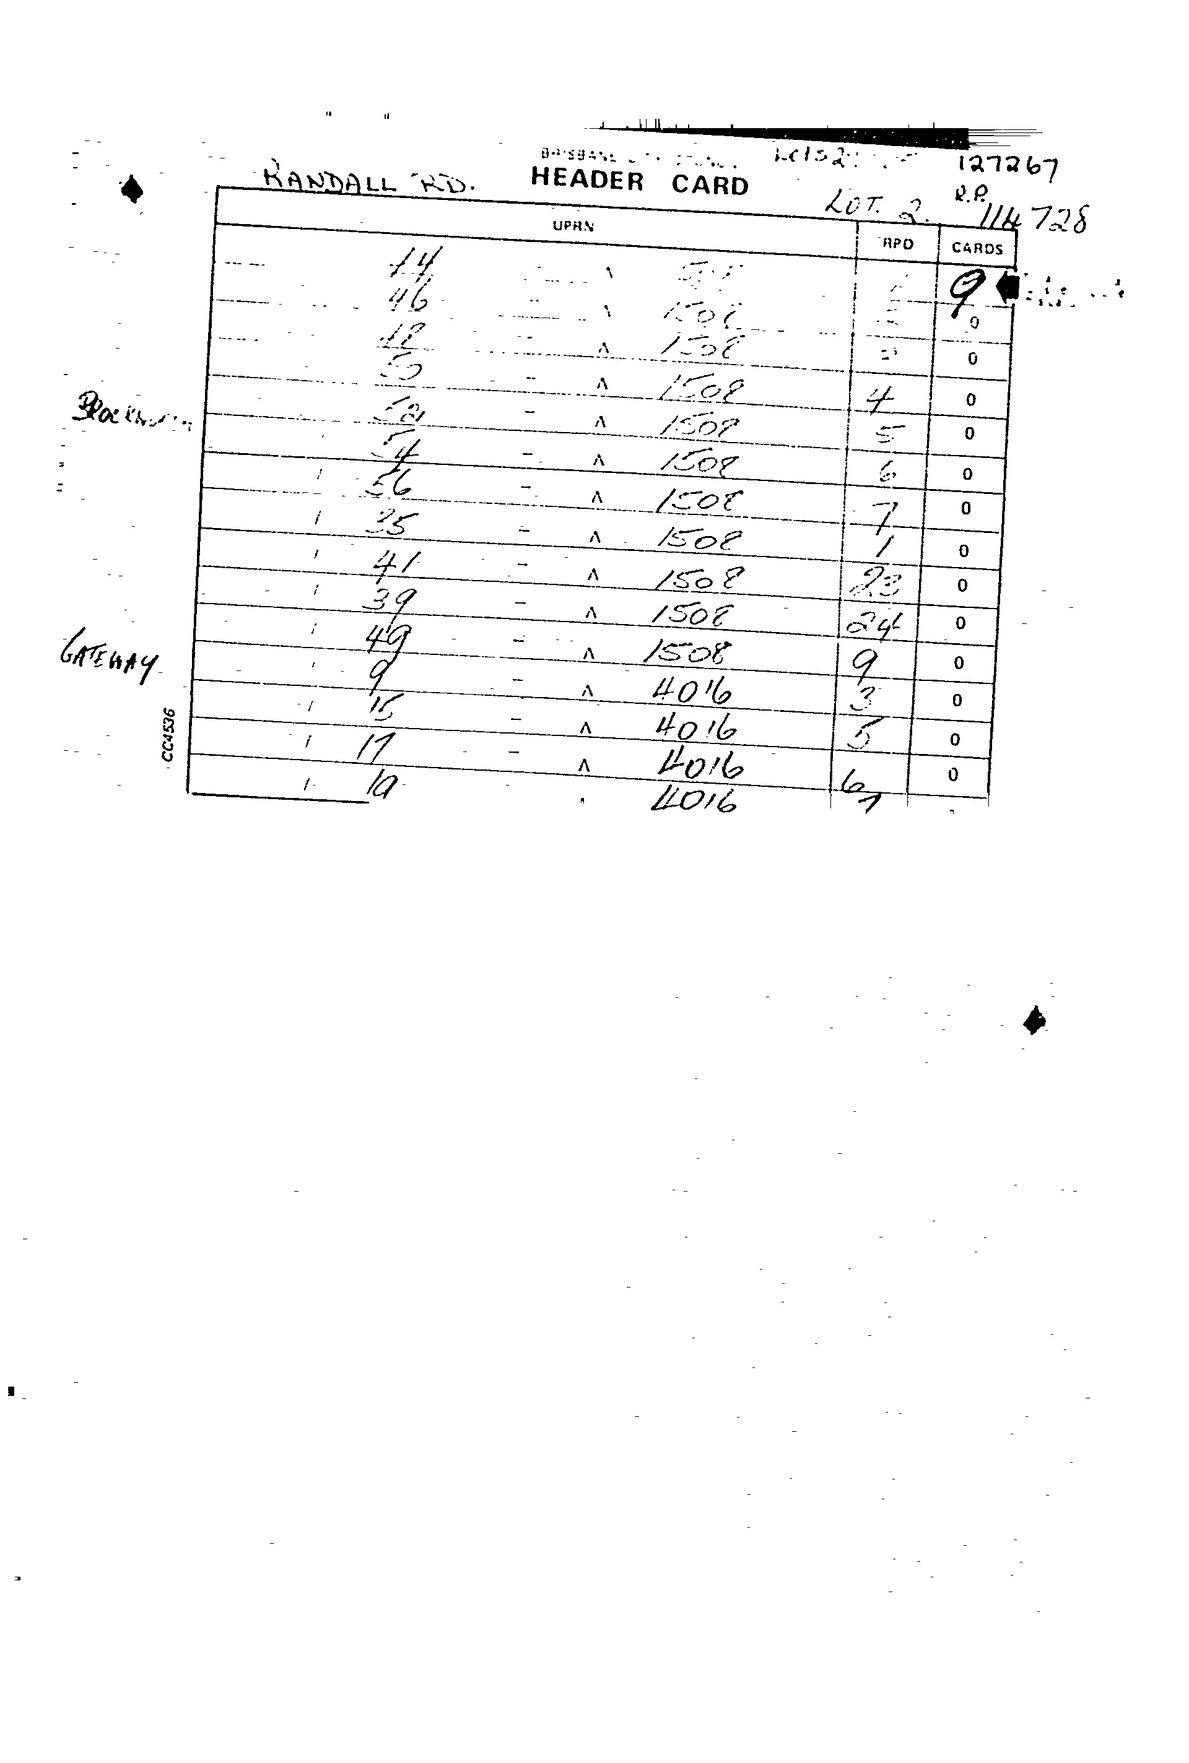 127267
RANDALL RD. HEADER CARD R.P.
LOT. 2. 114728
UPRN RPD CARDS
44 9
46 1508 0
48 1508 0
50 1508 4 0
52 1508 5 0
54 1508 6 0
56 1508 7 0
35 1508 1 0
41 1508 23 0
39 1508 24 0
GATEWAY 49 1508 9 0
9 4016 3 0
15 4016 5 0
17 4016 6 0
19 4016 7
CC4536